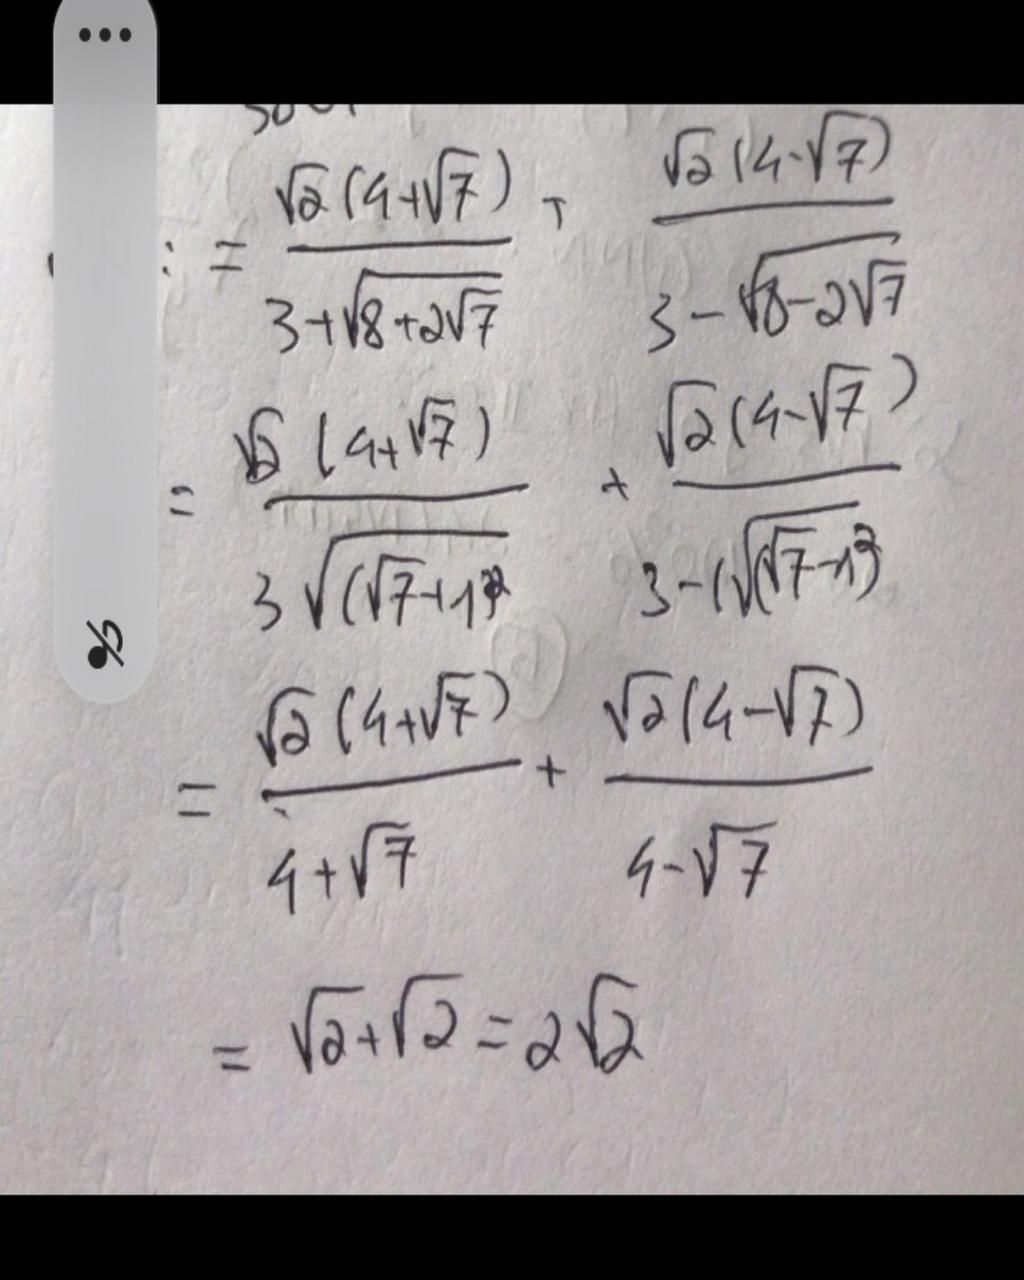 = √2(4+√7) / 3+√(8+2√7) + √2(4-√7) / 3-√(8-2√7)
= √2(4+√7) / 3√((√7+1)²) + √2(4-√7) / 3-(√((√7-1)²)
= √2(4+√7) / 4+√7 + √2(4-√7) / 4-√7
= √2+√2 = 2√2